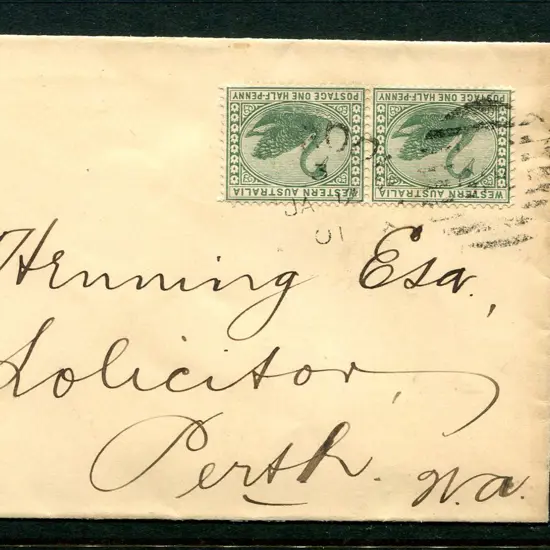 POSTAGE ONE HALF-PENNY
WESTERN AUSTRALIA
POSTAGE ONE HALF-PENNY
WESTERN AUSTRALIA
JA
01
Henning Esq.,
Solicitor,
Perth. W.a.